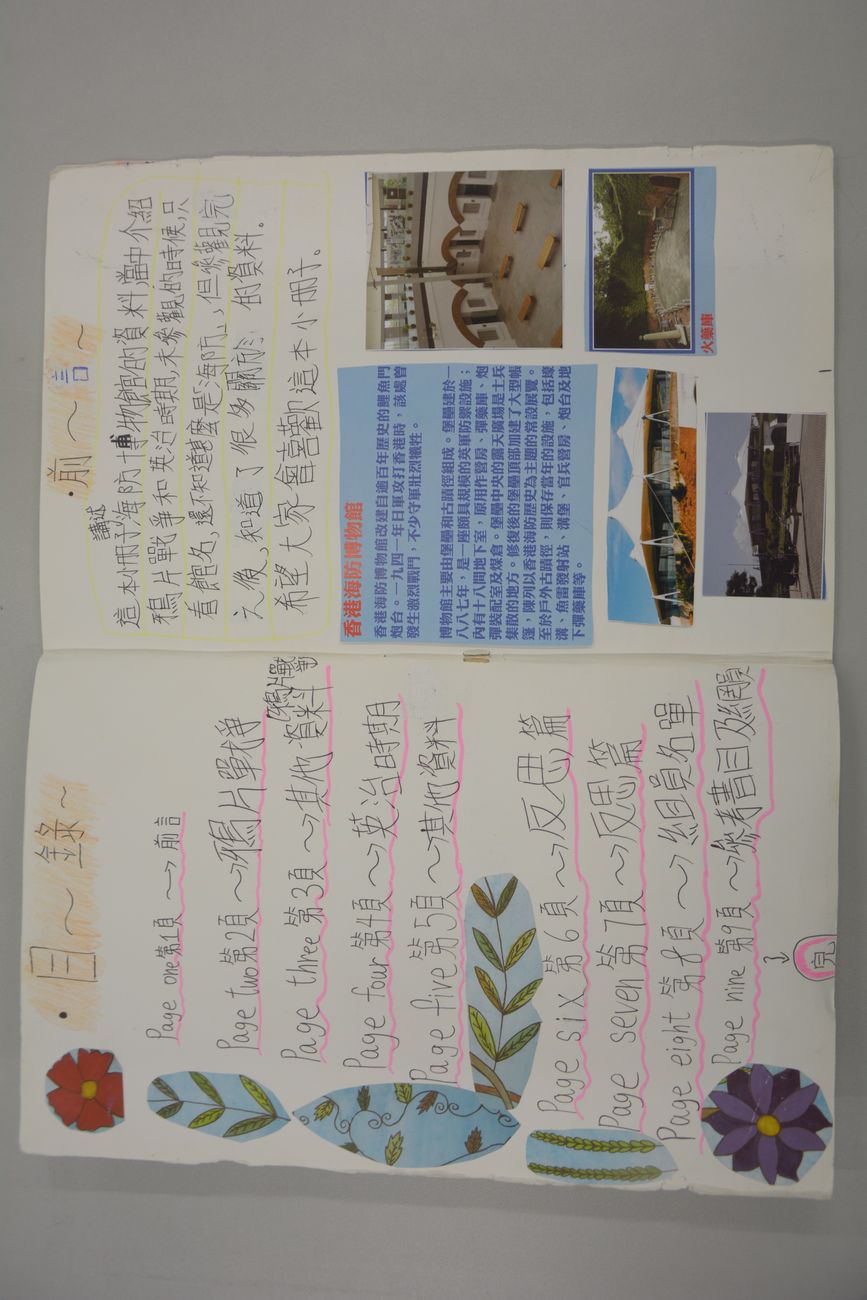 ·目～錄～
Page one第1頁～>前言
Page two第2頁～>鴉片戰爭
Page three第3頁～>其他資料(鴉片戰爭)
Page four第4頁～>英治時期
Page five第5頁～>其他資料
Page six第6頁～>反思篇
Page seven第7頁～>反思篇
Page eight第8頁～>組員名單
Page nine第9頁～>參考書目及網頁
完
·前～言～
這本小冊子講述海防博物館的資料當中介紹
鴉片戰爭和英治時期,未參觀的時候,只
看館名,還不知道甚麼是「海防」,但參觀完
之後,知道了很多關於 的資料。
希望大家會喜歡這本小冊子。
香港海防博物館
香港海防博物館改建自逾百年歷史的鯉魚門
炮台。一九四一年日軍攻打香港時，該處曾
發生激烈戰鬥，不少守軍壯烈犧牲。
博物館主要由堡壘和古蹟徑組成。堡壘建於一
八八七年，是一座頗具規模的英軍防禦設施；
內有十八間地下室，原用作營房、彈藥庫、炮
彈裝配室及煤倉。堡壘中央的露天廣場是士兵
集散的地方。修復後的堡壘頂部加建了大型帳
篷，陳列以香港海防歷史為主題的常設展覽。
至於戶外古蹟徑，則保存當年的設施，包括壕
溝、魚雷發射站、溝堡、官兵營房、炮台及地
下彈藥庫等。
火藥庫